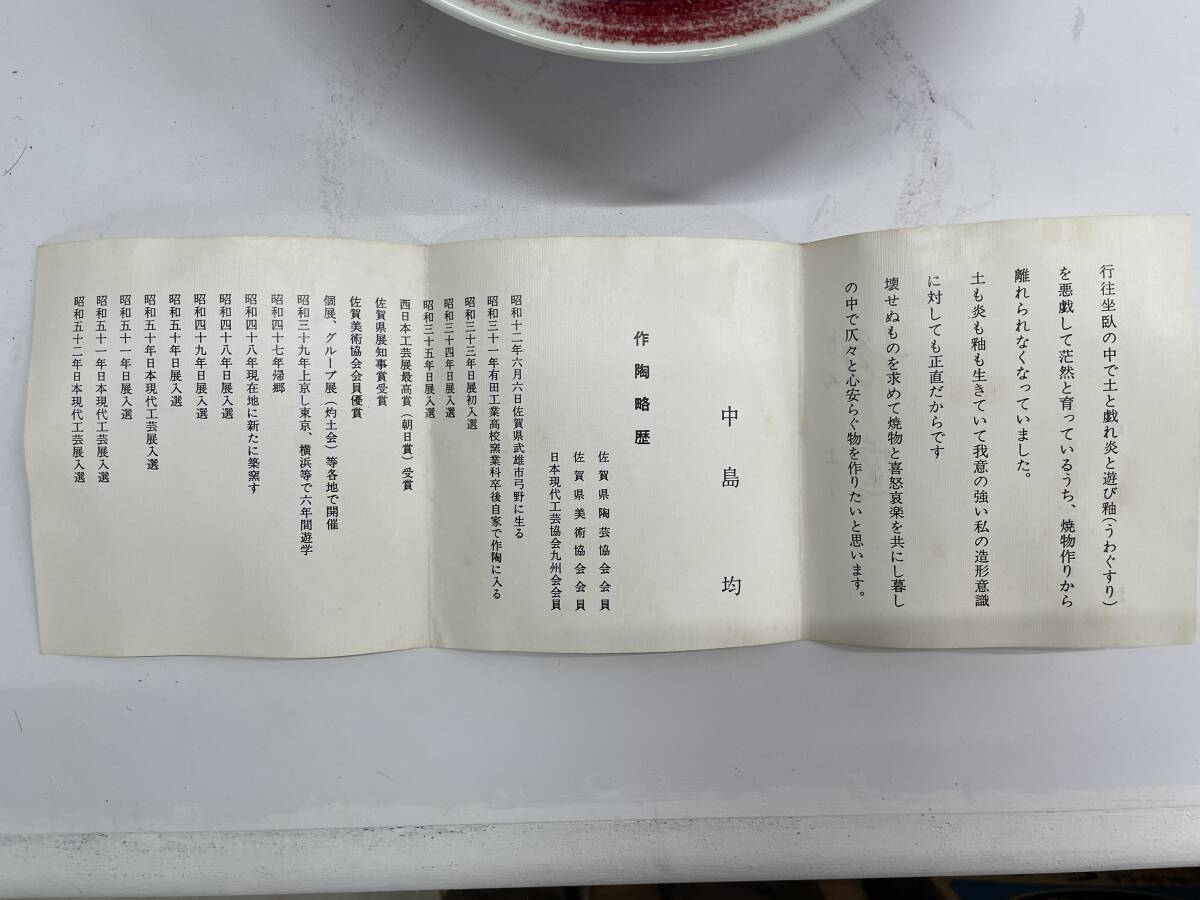 行往坐臥の中で土と戯れ炎と遊び釉(うわぐすり)
を悪戯して茫然と育っているうち、焼物作りから
離れられなくなっていました。
土も炎も釉も生きていて我意の強い私の造形意識
に対しても正直だからです
壊せぬものを求めて焼物と喜怒哀楽を共にし暮し
の中で仄々と心安らぐ物を作りたいと思います。
中島均
作陶略歴
佐賀県陶芸協会会員
佐賀県美術協会会員
日本現代工芸協会九州会会員
昭和十二年六月六日佐賀県武雄市弓野に生る
昭和三十一年有田工業高校窯業科卒後自家で作陶に入る
昭和三十三年日展初入選
昭和三十四年日展入選
昭和三十五年日展入選
西日本工芸展最高賞(朝日賞)受賞
佐賀県展知事賞受賞
佐賀美術協会会員優賞
個展、グループ展(灼土会)等各地で開催
昭和三十九年上京し東京、横浜等で六年間遊学
昭和四十七年帰郷
昭和四十八年現在地に新たに築窯す
昭和四十八年日展入選
昭和四十九年日展入選
昭和五十年日展入選
昭和五十年日本現代工芸展入選
昭和五十一年日展入選
昭和五十一年日本現代工芸展入選
昭和五十二年日本現代工芸展入選